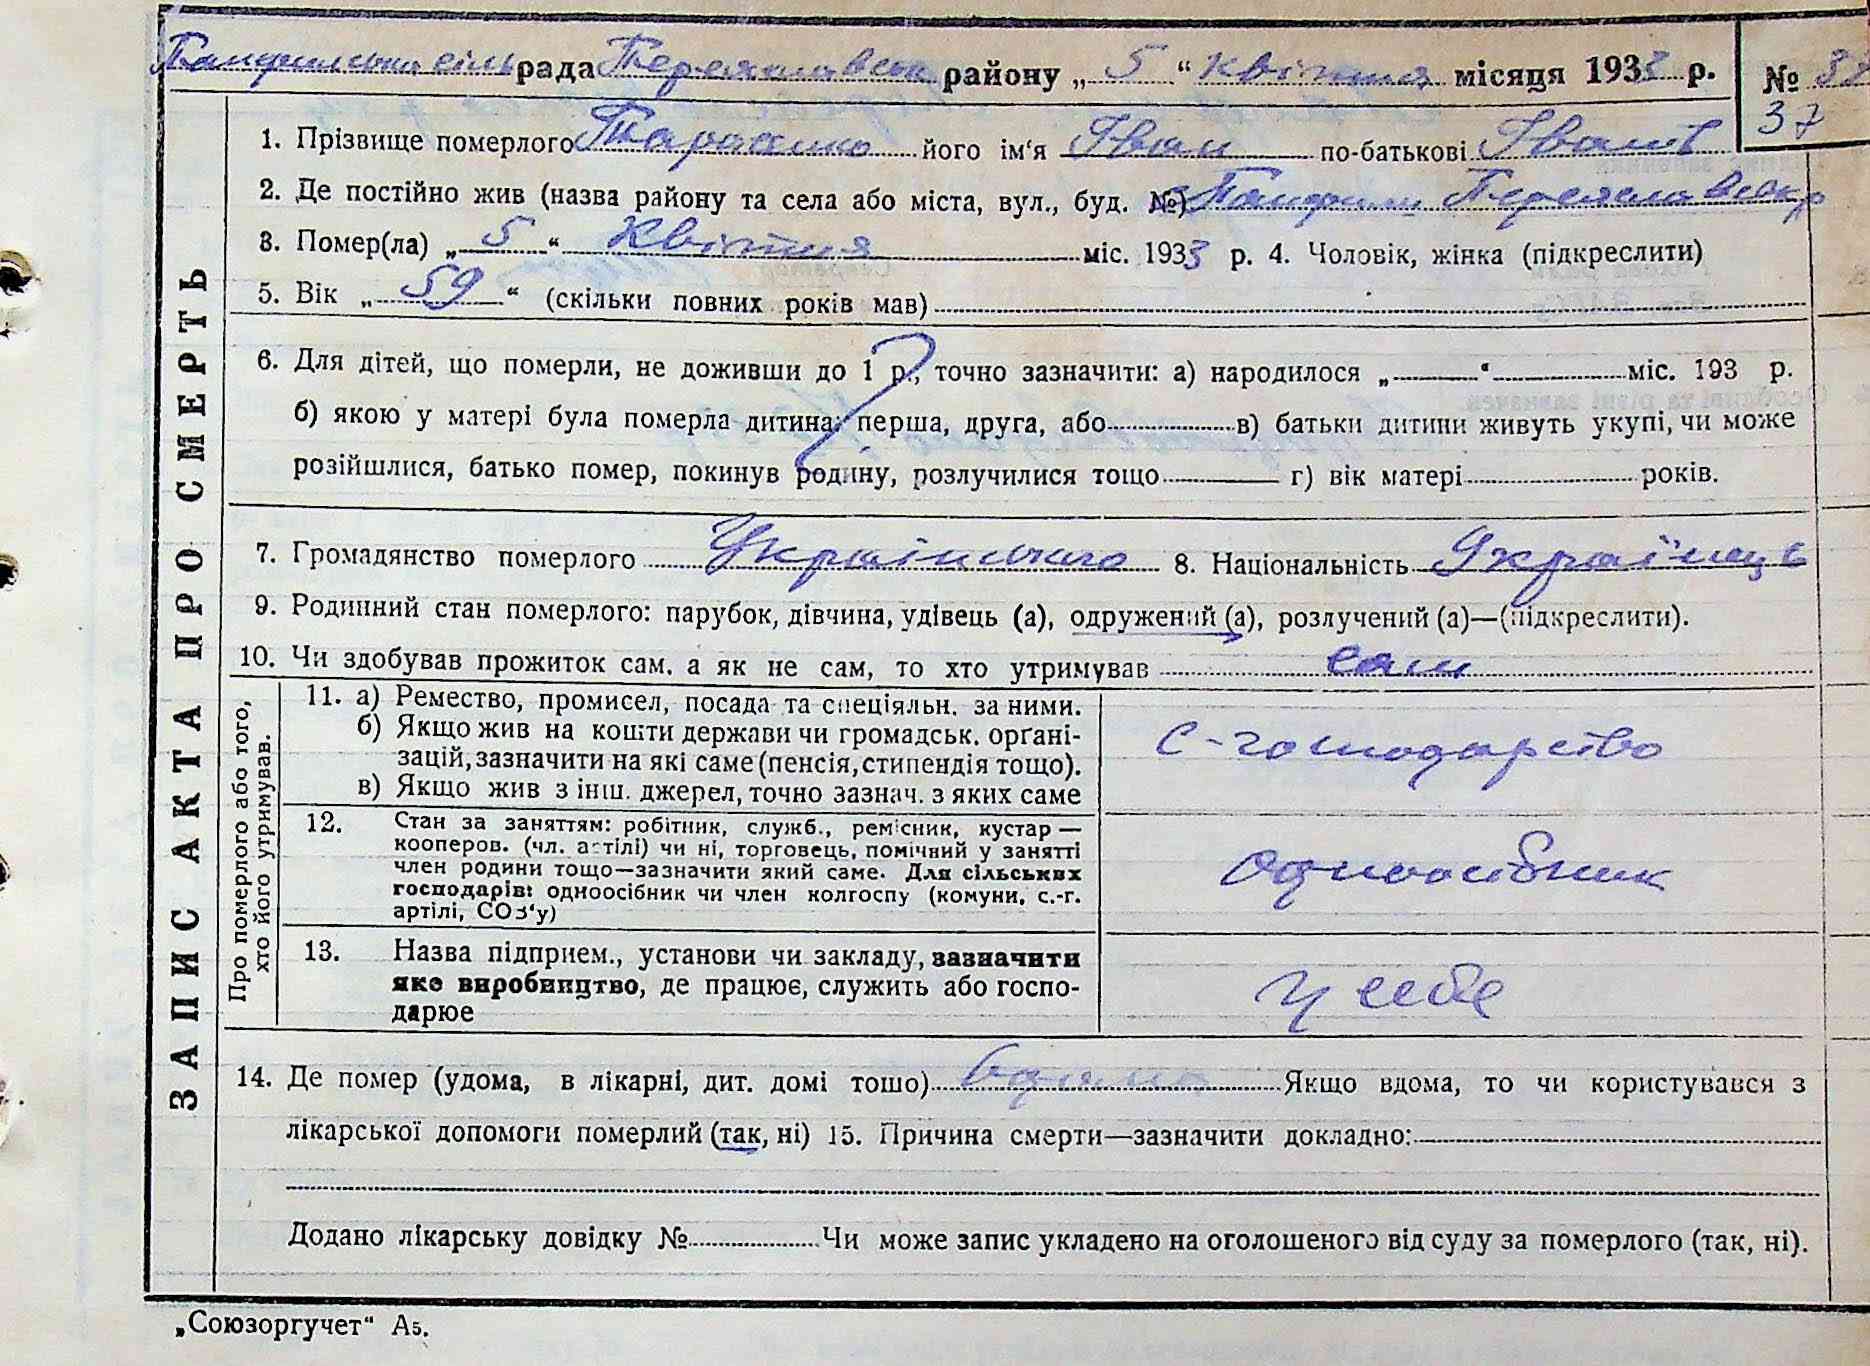 Помфильська сіль рада Переяславськ району „ 5 “ квітня місяця 1933 р.
№ 38
37
1. Прізвище померлого Тарасенко його ім‘я Іван по-батькові Іванів
2. Де постійно жив (назва району та села або міста, вул., буд. №) Помфили Переяславськ р
3. Помер(ла) „ 5 “ Квітня міс. 1933 р. 4. Чоловік, жінка (підкреслити)
5. Вік „ 59 “ (скільки повних років мав)
6. Для дітей, що померли, не доживши до 1 р., точно зазначити: а) народилося „ “ міс. 193 р.
б) якою у матері була померла дитина: перша, друга, або в) батьки дитини живуть укупі, чи може
розійшлися, батько помер, покинув родину, розлучилися тощо г) вік матері років.
7. Громадянство померлого Українського 8. Національність Українець
9. Родинний стан померлого: парубок, дівчина, удівець (а), одружений (а), розлучений (а)—(підкреслити).
10. Чи здобував прожиток сам, а як не сам, то хто утримував сам
ЗАПИС АКТА ПРО СМЕРТЬ
Про померлого або того,
хто його утримував.
11. а) Ремество, промисел, посада та спеціяльн. за ними.
б) Якщо жив на кошти держави чи громадськ. органі-
зацій, зазначити на які саме (пенсія, стипендія тощо).
в) Якщо жив з інш. джерел, точно зазнач. з яких саме
с-господарство
12. Стан за заняттям: робітник, служб., ремісник, кустар —
кооперов. (чл. астілі) чи ні, торговець, помічний у занятті
член родини тощо—зазначити який саме. Для сільських
господарів: одноосібник чи член колгоспу (комуни, с.-г.
артілі, СОЗ‘у)
одноосібник
13. Назва підприєм., установи чи закладу, зазначити
яке виробництво, де працює, служить або госпо-
дарює
у себе
14. Де помер (удома, в лікарні, дит. домі тошо) вдома Якщо вдома, то чи користувався з
лікарської допомоги померлий (так, ні) 15. Причина смерти—зазначити докладно:
Додано лікарську довідку № Чи може запис укладено на оголошеного від суду за померлого (так, ні).
„Союзоргучет“ А5.